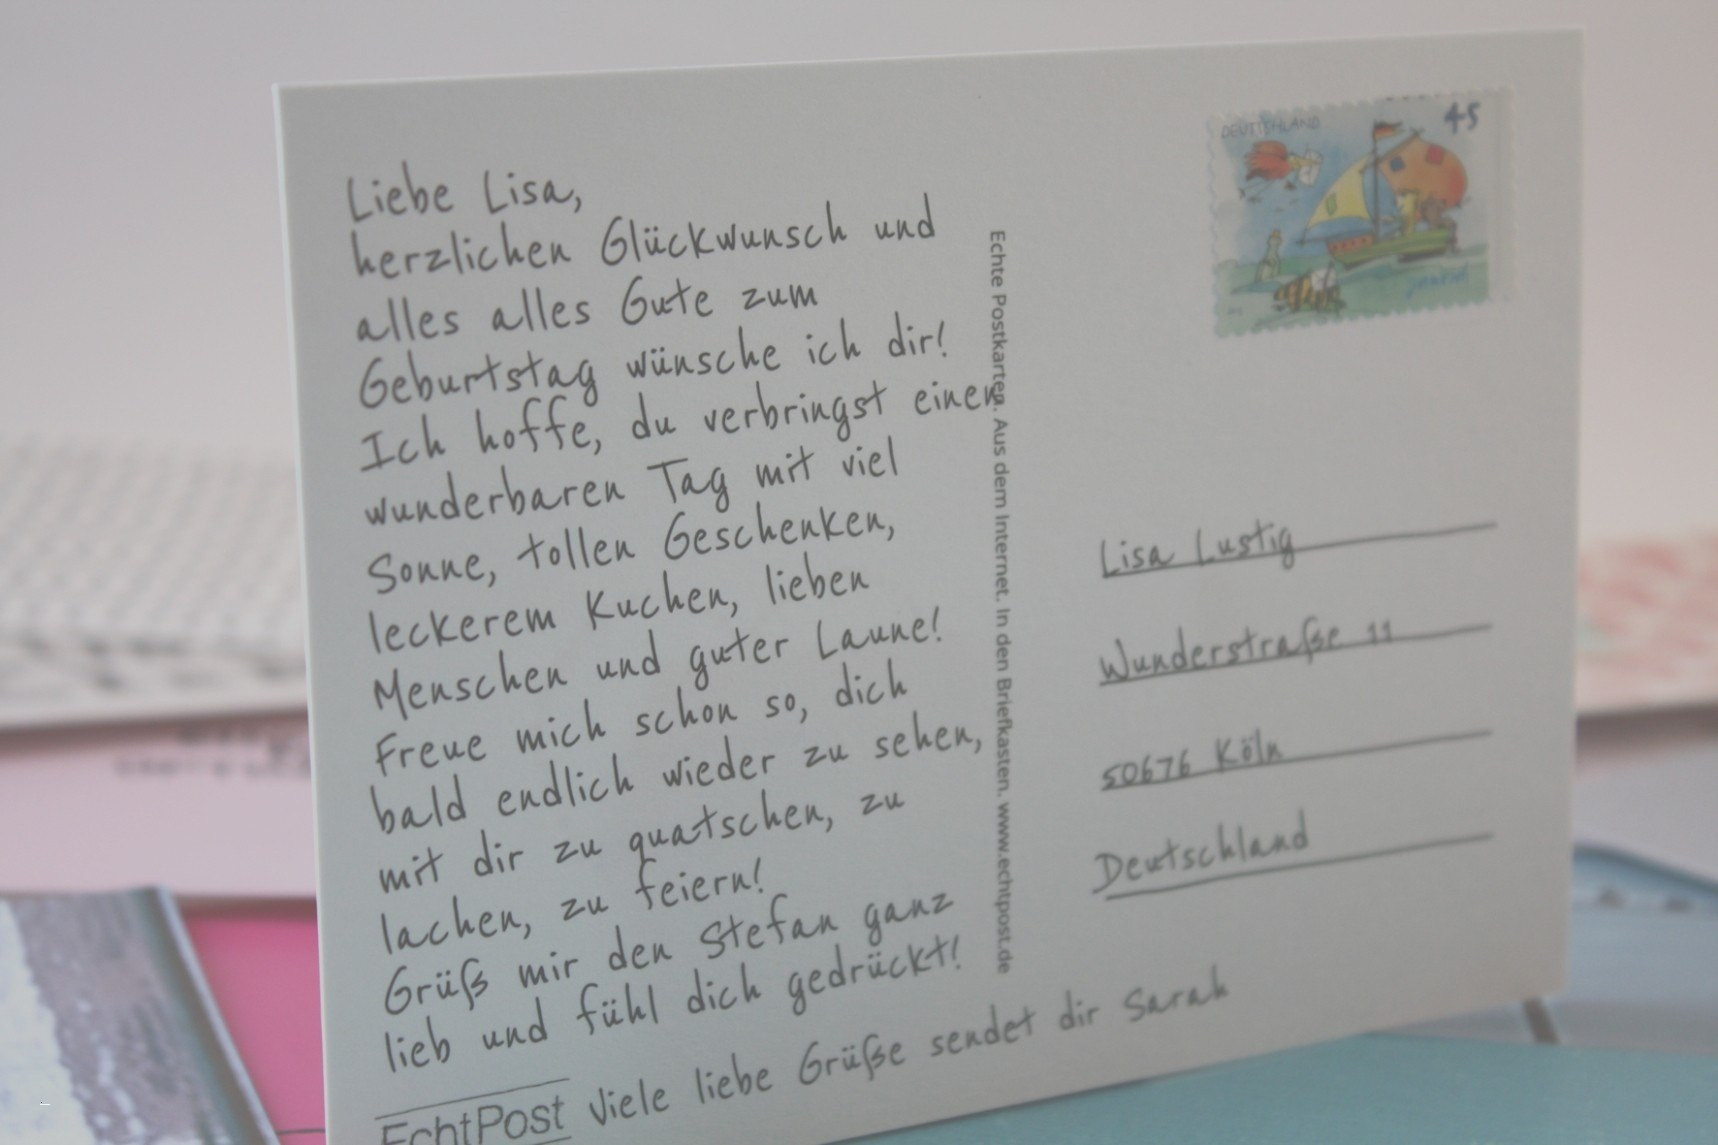 Liebe Lisa,
herzlichen Glückwunsch und
alles alles Gute zum
Geburtstag wünsche ich dir!
Ich hoffe, du verbringst einen
wunderbaren Tag mit viel
Sonne, tollen Geschenken,
leckerem Kuchen, lieben
Menschen und guter Laune!
Freue mich schon so, dich
bald endlich wieder zu sehen,
mit dir zu quatschen, zu
lachen, zu feiern!
Grüß mir den Stefan ganz
lieb und fühl dich gedrückt!
Viele liebe Grüße sendet dir Sarah
EchtPost
Echte Postkarten. Aus dem Internet. In den Briefkasten. www.echtpost.de
DEUTSCHLAND
45
Lisa Lustig
Wunderstraße 11
50676 Köln
Deutschland